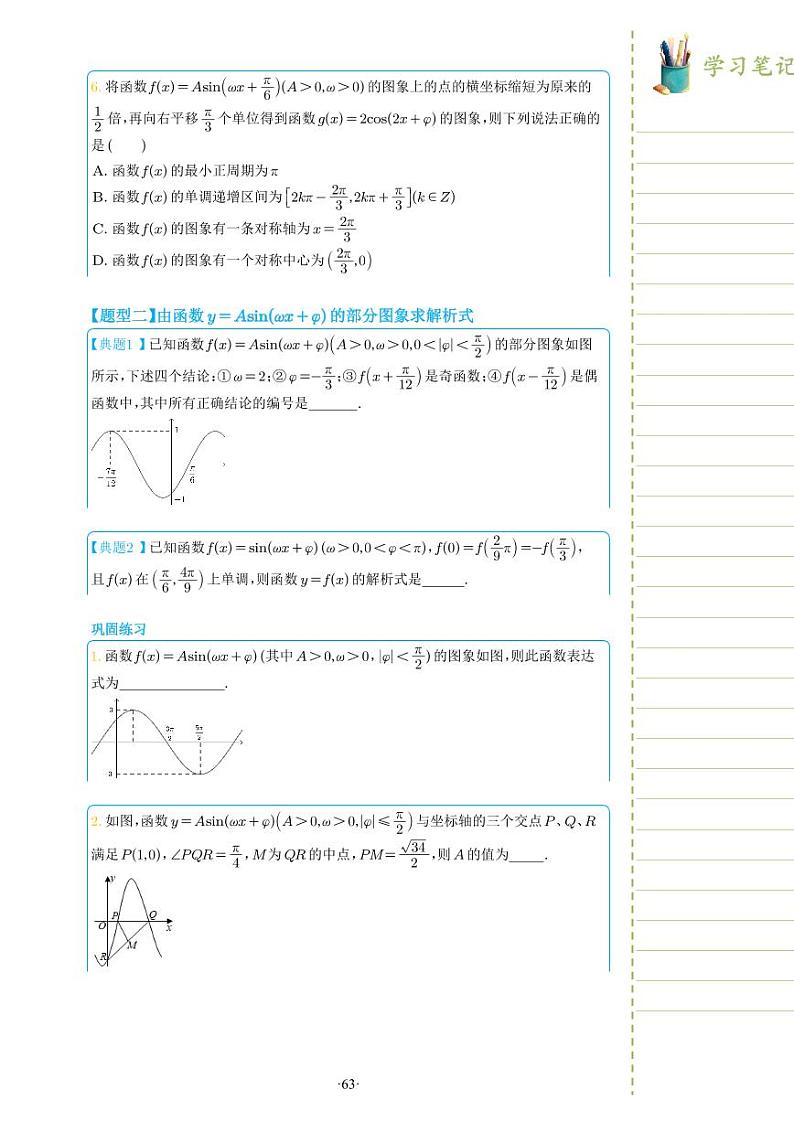 学习笔记
6. 将函数f(x)=Asin(ωx+π/6)(A>0,ω>0)的图象上的点的横坐标缩短为原来的
1/2倍,再向右平移π/3个单位得到函数g(x)=2cos(2x+φ)的图象,则下列说法正确的
是(  )
A. 函数f(x)的最小正周期为π
B. 函数f(x)的单调递增区间为[2kπ-2π/3,2kπ+π/3](k∈Z)
C. 函数f(x)的图象有一条对称轴为x=2π/3
D. 函数f(x)的图象有一个对称中心为(2π/3,0)
【题型二】由函数y=Asin(ωx+φ)的部分图象求解析式
【典题1】已知函数f(x)=Asin(ωx+φ)(A>0,ω>0,0<|φ|<π/2)的部分图象如图
所示,下述四个结论:①ω=2;②φ=-π/3;③f(x+π/12)是奇函数;④f(x-π/12)是偶
函数中,其中所有正确结论的编号是_______.
1
-7π/12
π/6
-1
【典题2】已知函数f(x)=sin(ωx+φ)(ω>0,0<φ<π),f(0)=f(2/9π)=-f(π/3),
且f(x)在(π/6,4π/9)上单调,则函数y=f(x)的解析式是______.
巩固练习
1. 函数f(x)=Asin(ωx+φ)(其中A>0,ω>0,|φ|<π/2)的图象如图,则此函数表达
式为_______________.
3
3π/2
5π/2
3
2. 如图,函数y=Asin(ωx+φ)(A>0,ω>0,|φ|≤π/2)与坐标轴的三个交点P、Q、R
满足P(1,0),∠PQR=π/4,M为QR的中点,PM=√34/2,则A的值为_____.
y
P
Q
O
x
M
R
·63·